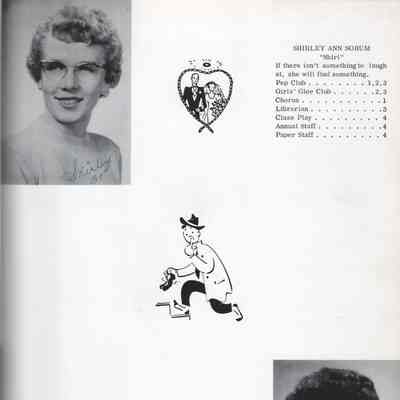 SHIRLEY ANN SORUM
"Shirl"
If there isn't something to laugh
at, she will find something.
Pep Club . . . . . . . . 1,2,3
Girls' Glee Club . . . . . . 2,3
Chorus . . . . . . . . . . 1
Librarian . . . . . . . . . 3
Class Play . . . . . . . . 4
Annual Staff . . . . . . . . 4
Paper Staff . . . . . . . . 4
Shirley